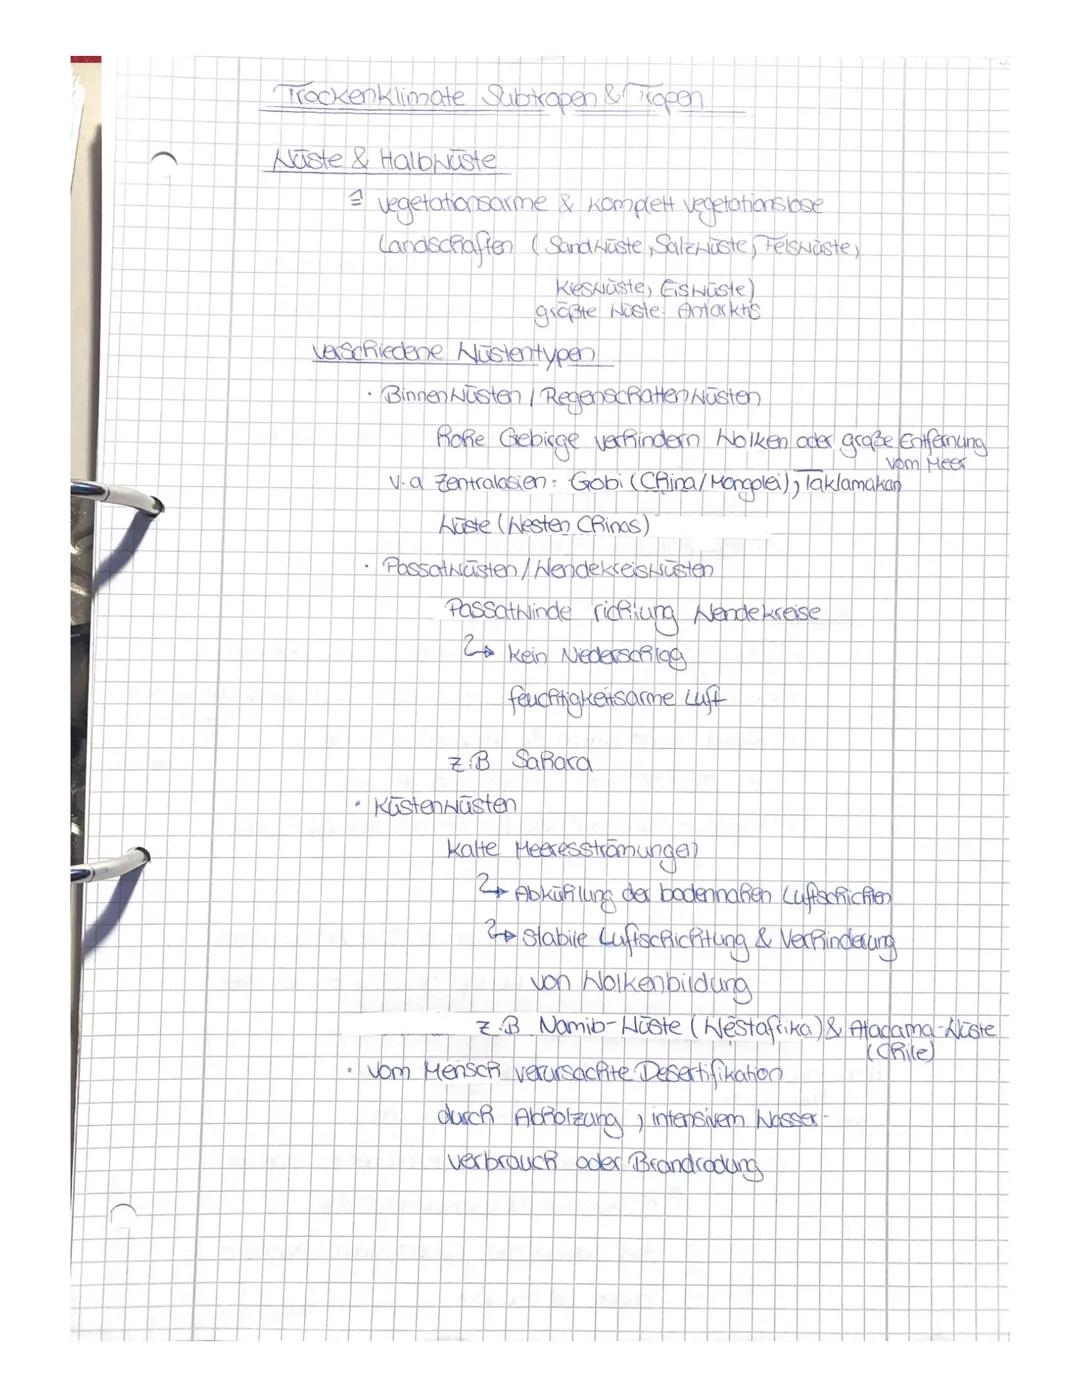 Trockenklimate Subtropen & Tropen
Wüste & Halbwüste
≙ vegetationsarme & komplett vegetationslose
Landschaften (Sandwüste, Salzwüste, Felswüste,
Kieswüste, Eiswüste)
größte Wüste: Antarktis
verschiedene Wüstentypen
· Binnenwüsten / Regenschattenwüsten
hohe Gebirge verhindern Wolken oder große Entfernung
vom Meer
v.a Zentralasien: Gobi (China/Mongolei), Taklamakan
Wüste (Westen Chinas)
· Passatwüsten / Wendekreiswüsten
Passatwinde richtung Wendekreise
↳ kein Niederschlag
feuchtigkeitsarme Luft
z.B Sahara
· Küstenwüsten
kalte Meeresströmungen
↳ Abkühlung der bodennahen Luftschichten
↳ stabile Luftschichtung & Verhinderung
von Wolkenbildung
z.B Namib-Wüste (Westafrika) & Atacama-Wüste
(Chile)
· vom Mensch verursachte Desertifikation
durch Abholzung, intensivem Wasser-
verbrauch oder Brandrodung